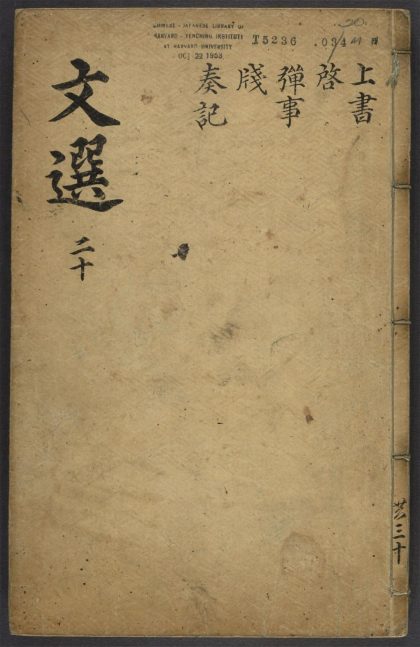 CHINESE - JAPANESE LIBRARY OF
HARVARD - YENCHING INSTITUTE
AT HARVARD UNIVERSITY
OCT 22 1953
T5236 .034
上書
啓
彈事
牋
奏記
文選
二十
共三十